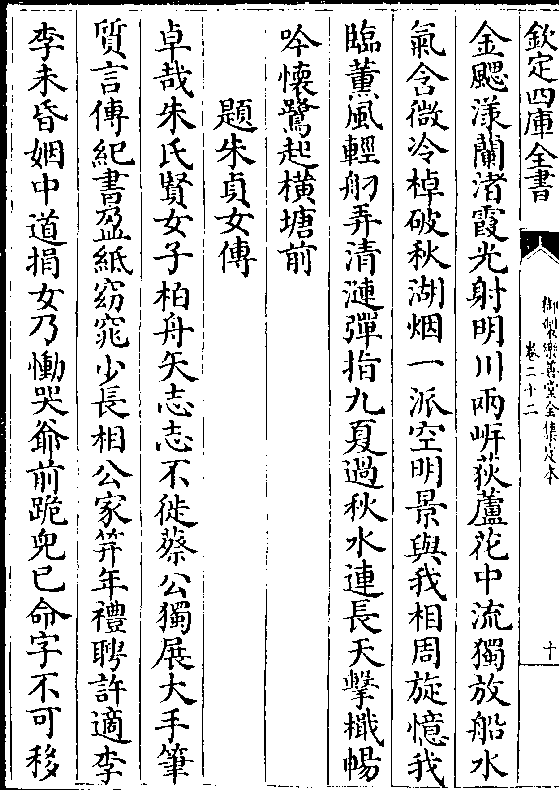 欽定四庫全書
御製樂善堂全集定本
卷二十二
十
金颸漾蘭渚霞光射明川兩岍荻蘆花中流獨放船水
氣含微冷棹破秋湖烟一派空明景與我相周旋憶我
臨薰風輕舠弄清漣彈指九夏過秋水連長天擊檝暢
吟懷鷺起橫塘前
題朱貞女傳
卓哉朱氏賢女子柏舟矢志志不徙蔡公獨展大手筆
質言傳紀書盈紙窈窕少長相公家笄年禮聘許適李
李未昏姻中道捐女乃慟哭爺前跪兒已命字不可移